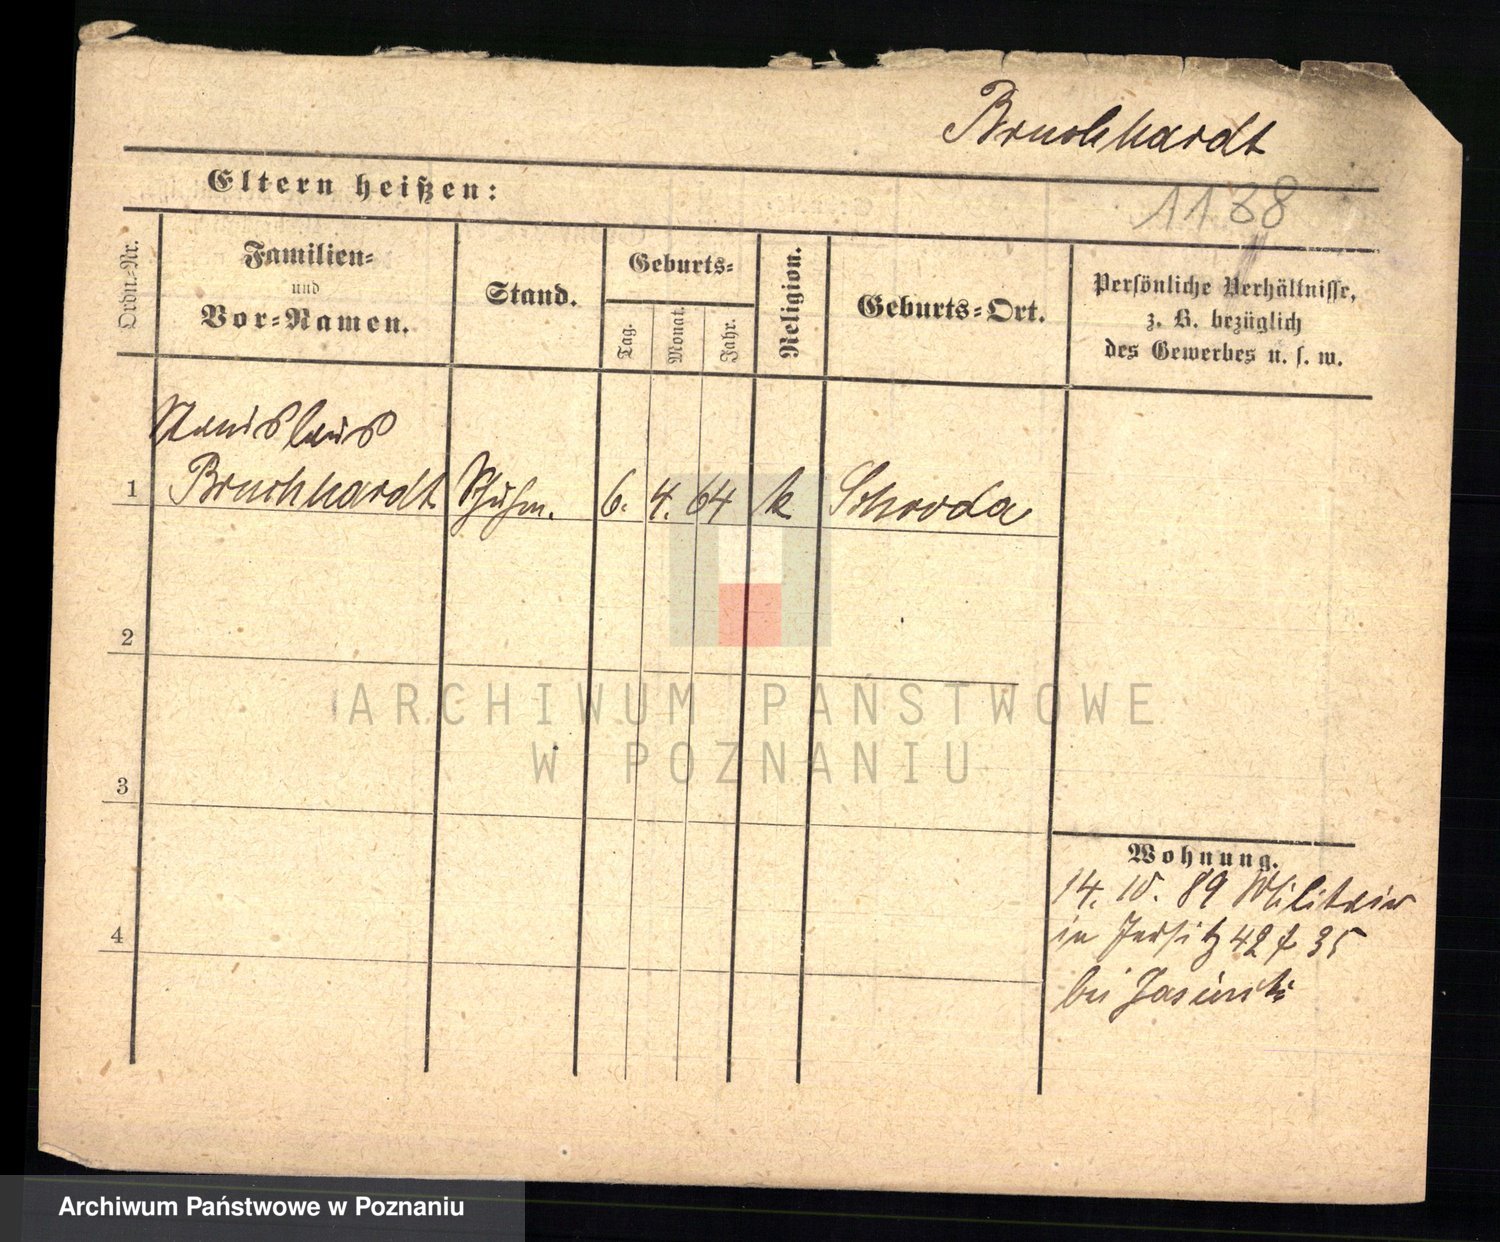 Bruchhardt
Eltern heißen:
1188
Ordn.-Nr.
Familien-
und
Vor-Namen.
Stand.
Geburts-
Tag.
Monat.
Jahr.
Religion.
Geburts-Ort.
Persönliche Verhältnisse,
z. B. bezüglich
des Gewerbes u. s. w.
Stanislaus
1 Bruchhardt Schuhm. 6. 4. 64 k Schroda
2
3
4
Wohnung.
14. 10. 89 Militair
in Jersitz 42 35
bei Jasinski
ARCHIWUM PAŃSTWOWE
W POZNANIU
Archiwum Państwowe w Poznaniu